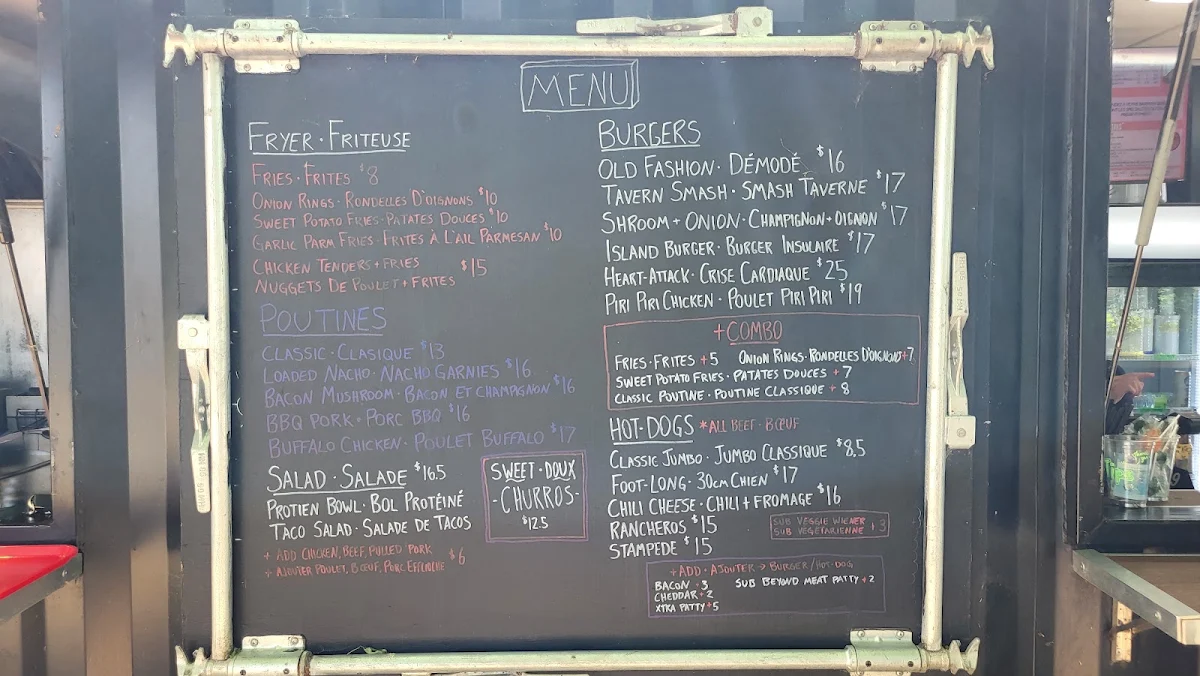 MENU
FRYER · FRITEUSE
FRIES · FRITES $8
ONION RINGS · RONDELLES D'OIGNONS $10
SWEET POTATO FRIES · PATATES DOUCES $10
GARLIC PARM FRIES · FRITES À L'AIL PARMESAN $10
CHICKEN TENDERS + FRIES $15
NUGGETS DE POULET + FRITES
POUTINES
CLASSIC · CLASIQUE $13
LOADED NACHO · NACHO GARNIES $16
BACON MUSHROOM · BACON ET CHAMPIGNON $16
BBQ PORK · PORC BBQ $16
BUFFALO CHICKEN · POULET BUFFALO $17
SALAD · SALADE $16.5
PROTIEN BOWL · BOL PROTÉINÉ
TACO SALAD · SALADE DE TACOS
+ ADD CHICKEN, BEEF, PULLED PORK $6
+ AJOUTER POULET, BŒUF, PORC EFFLIOCHE
SWEET · DOUX
- CHURROS -
$12.5
BURGERS
OLD FASHION · DÉMODÉ $16
TAVERN SMASH · SMASH TAVERNE $17
SHROOM + ONION · CHAMPIGNON + OIGNON $17
ISLAND BURGER · BURGER INSULAIRE $17
HEART-ATTACK · CRISE CARDIAQUE $25
PIRI PIRI CHICKEN · POULET PIRI PIRI $19
+ COMBO
FRIES · FRITES + 5 ONION RINGS · RONDELLES D'OIGNONS + 7
SWEET POTATO FRIES · PATATES DOUCES + 7
CLASSIC POUTINE · POUTINE CLASSIQUE + 8
HOT-DOGS *ALL BEEF · BŒUF
CLASSIC JUMBO · JUMBO CLASSIQUE $8.5
FOOT-LONG · 30CM CHIEN $17
CHILI CHEESE · CHILI + FROMAGE $16
RANCHEROS $15
STAMPEDE $15
SUB VEGGIE WIENER + 3
SUB VEGETARIENNE
+ ADD · AJOUTER → BURGER / HOT-DOG
BACON + 3 SUB BEYOND MEAT PATTY + 2
CHEDDAR + 2
XTRA PATTY + 5